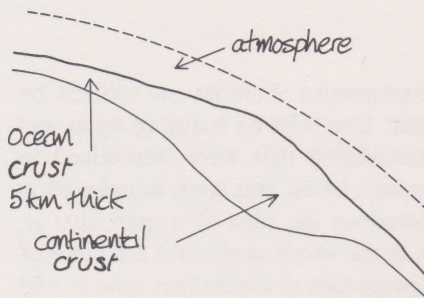 atmosphere
ocean
crust
5km thick
continental
crust